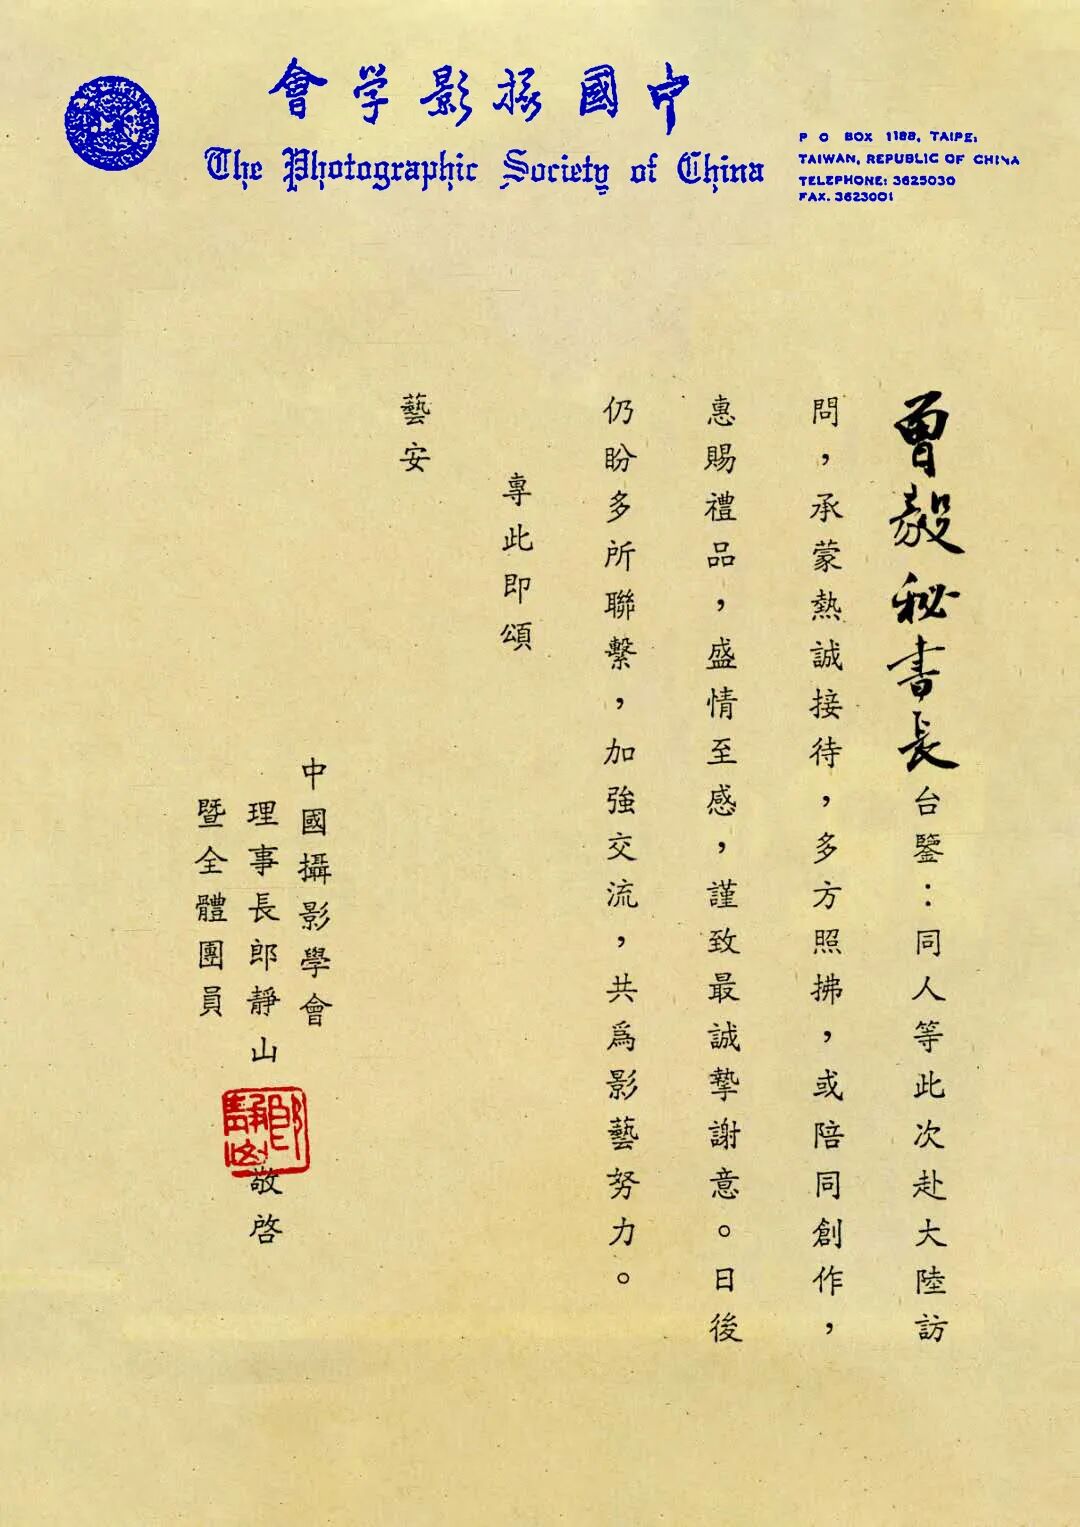 中國攝影学會
The Photographic Society of China
P O BOX 1188, TAIPEI,
TAIWAN, REPUBLIC OF CHINA
TELEPHONE: 3625030
FAX. 3623001
曾毅秘書長台鑒：同人等此次赴大陸訪
問，承蒙熱誠接待，多方照拂，或陪同創作，
惠賜禮品，盛情至感，謹致最誠摯謝意。日後
仍盼多所聯繫，加強交流，共爲影藝努力。
專此即頌
藝安
中國攝影學會
理事長郎靜山 敬啓
暨全體團員
郎靜山